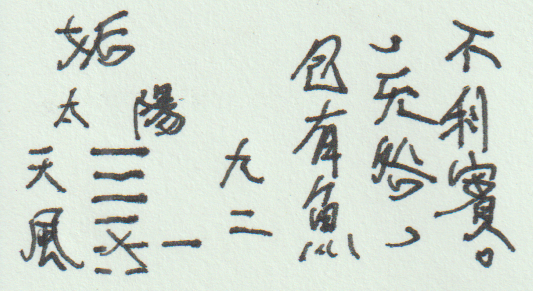 姤
太陽
天風
九二
包有魚
，无咎，
不利賓。